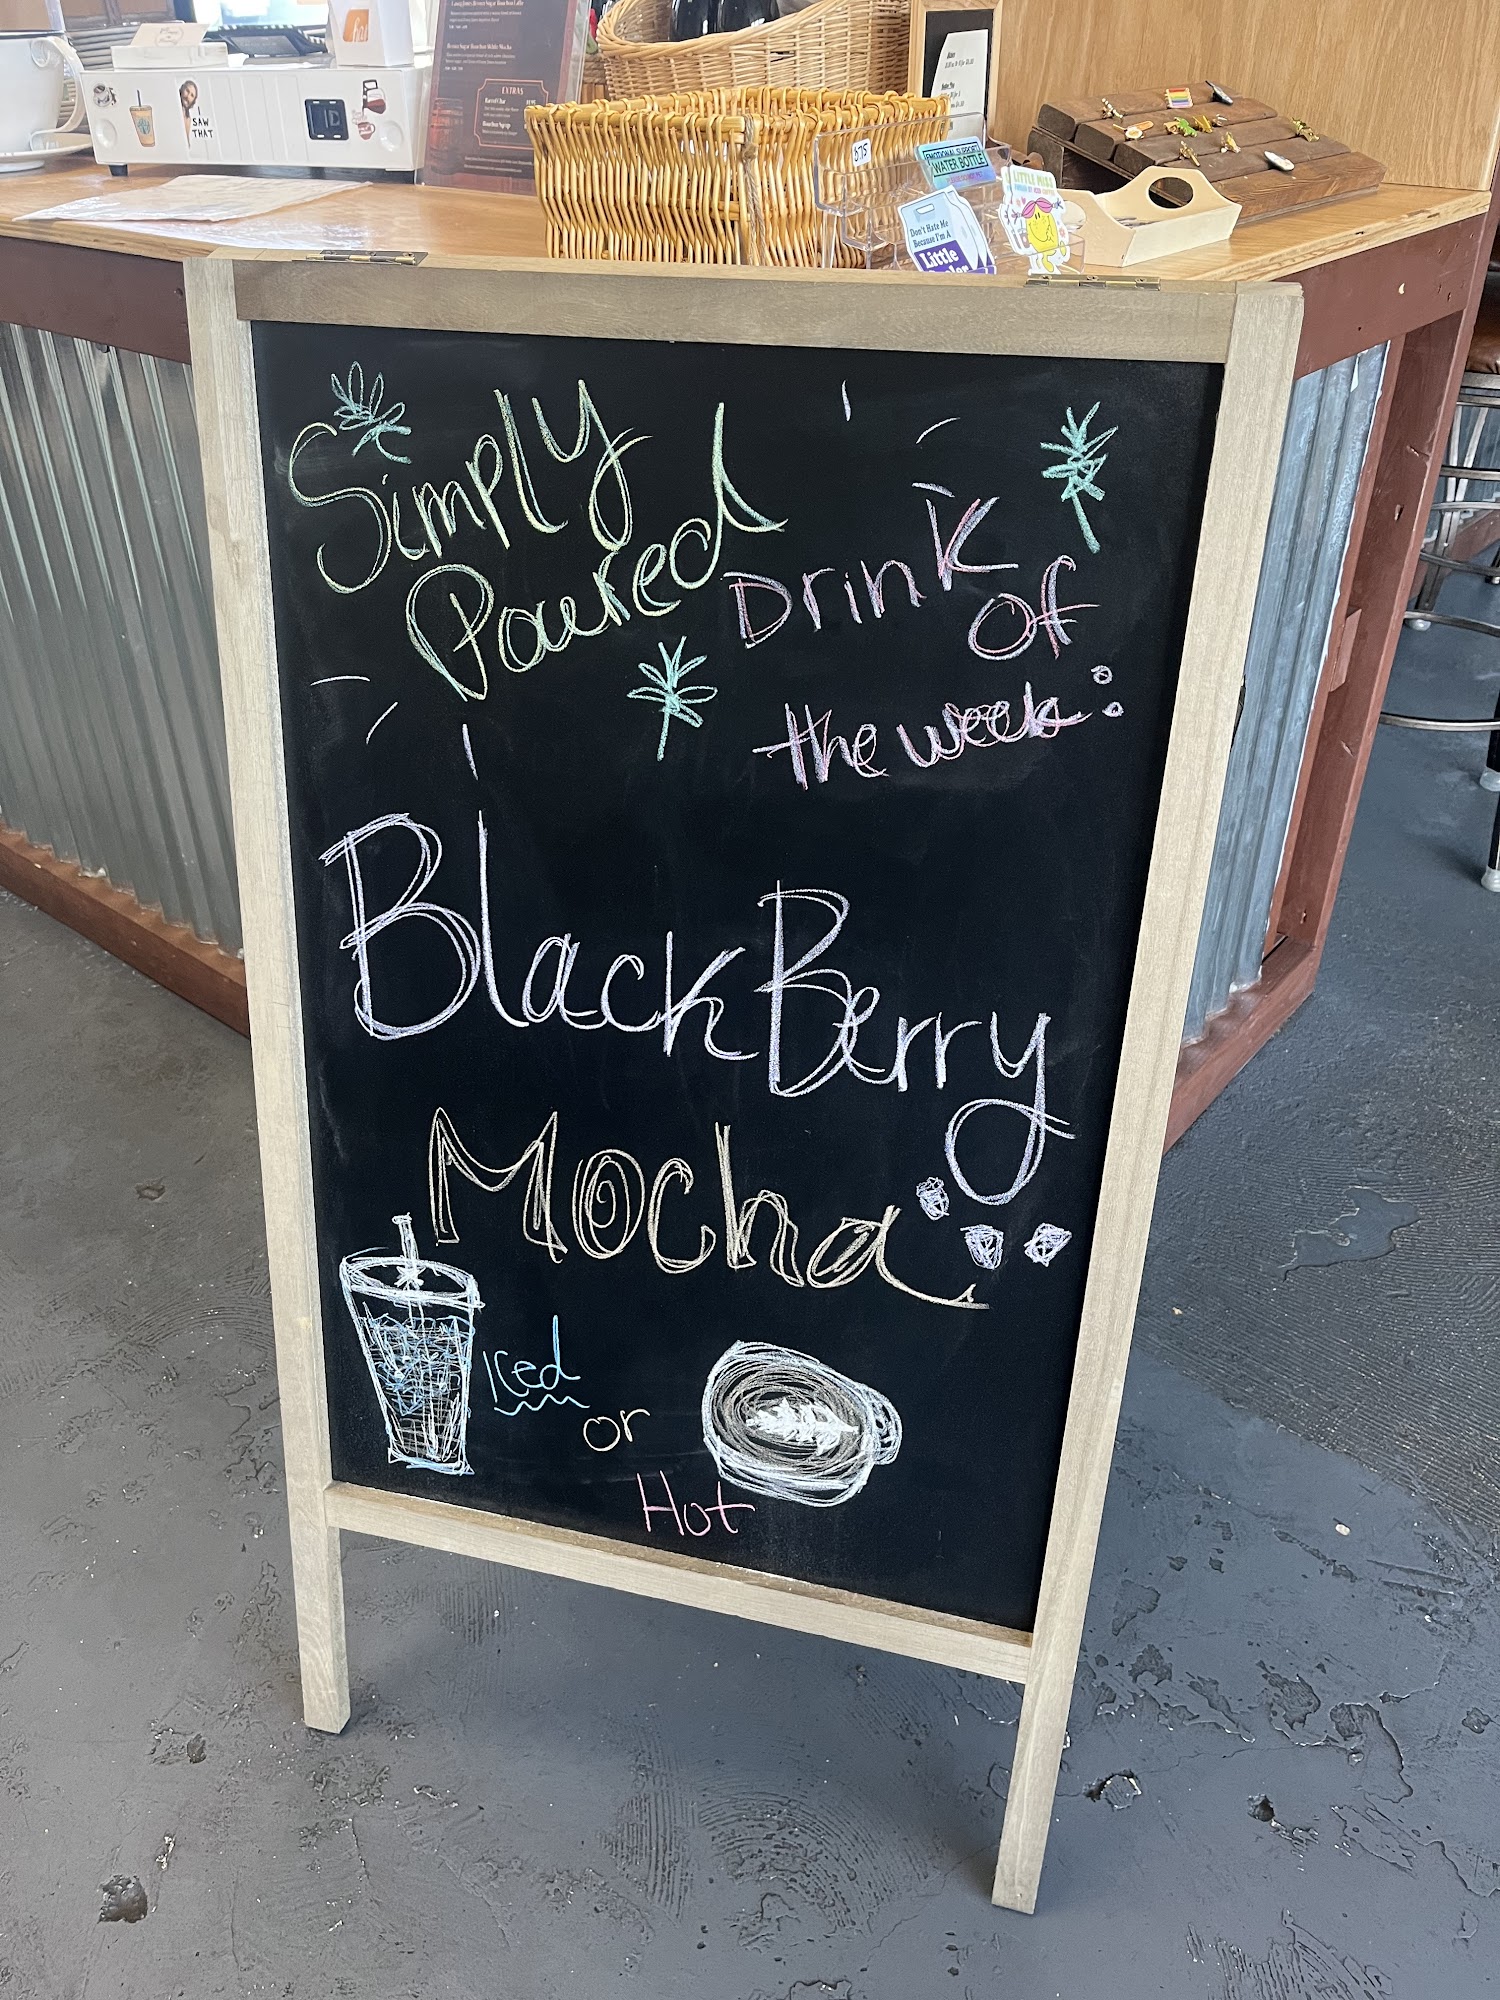 EXTRAS
I
SAW
THAT
ID
.875
EMOTIONAL SUPPORT
WATER BOTTLE
LITTLE MISS
Don't Hate Me
Because I'm A
Little
Simply
Poured
Drink
of
the week:
BlackBerry
Mocha
Iced
or
Hot